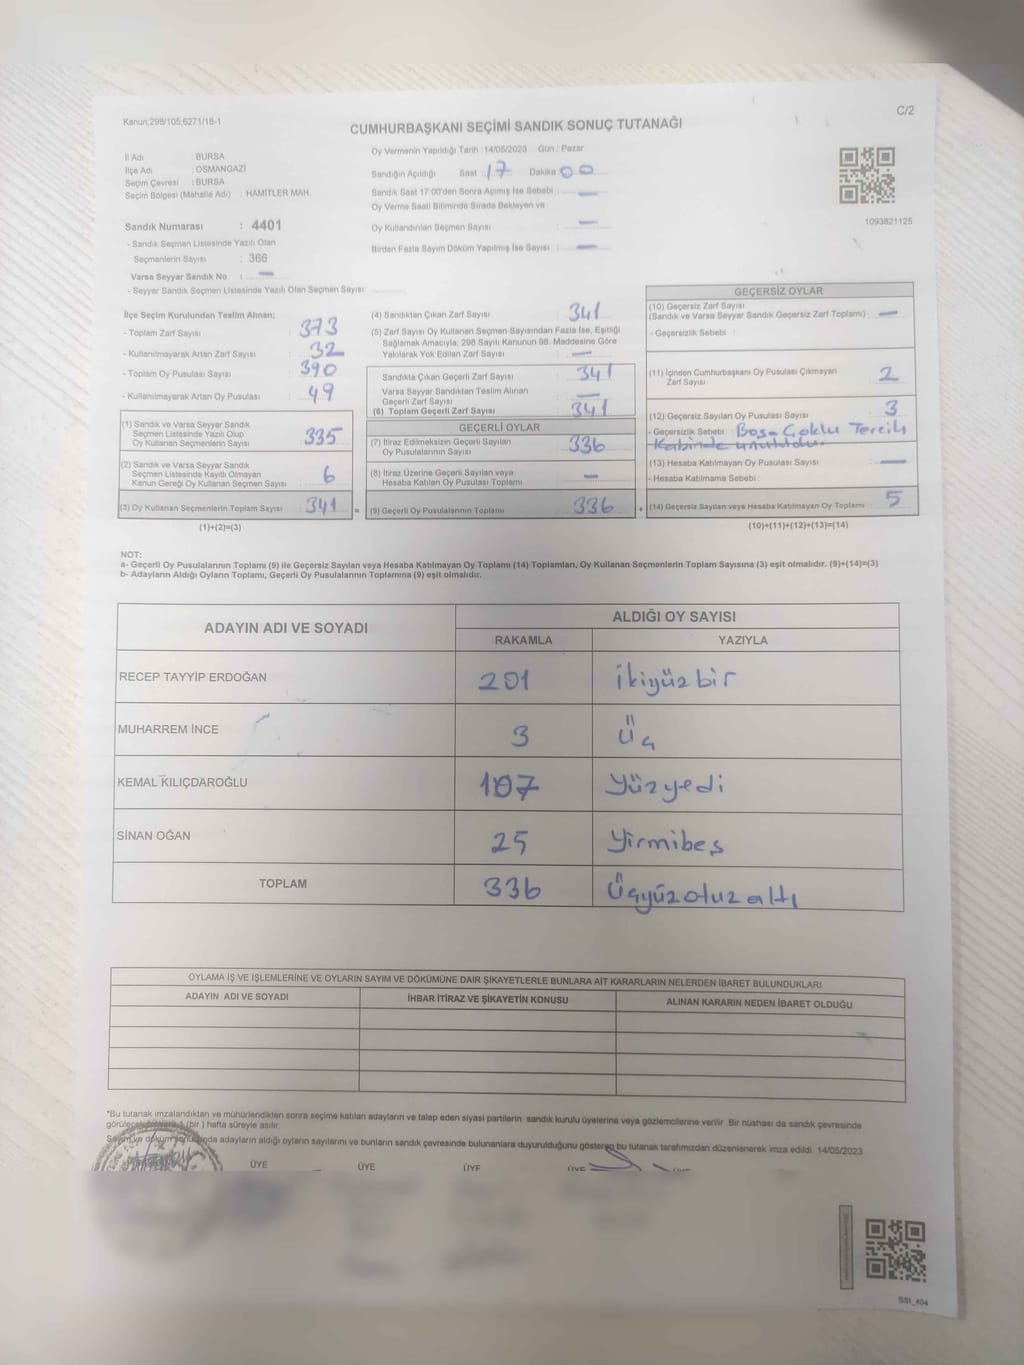 Kanun;298/105;6271/18-1
C/2
CUMHURBAŞKANI SEÇİMİ SANDIK SONUÇ TUTANAĞI
İl Adı : BURSA
İlçe Adı : OSMANGAZİ
Seçim Çevresi : BURSA
Seçim Bölgesi (Mahalle Adı) : HAMİTLER MAH.
Sandık Numarası : 4401
- Sandık Seçmen Listesinde Yazılı Olan
Seçmenlerin Sayısı : 366
Varsa Seyyar Sandık No : —
- Seyyar Sandık Seçmen Listesinde Yazılı Olan Seçmen Sayısı:
Oy Vermenin Yapıldığı Tarih : 14/05/2023 Gün : Pazar
Sandığın Açıldığı Saat : 17 Dakika 00
Sandık Saat 17:00'den Sonra Açımış İse Sebebi : —
Oy Verme Saati Bitiminde Sırada Bekleyen ve
Oy Kullandırılan Seçmen Sayısı : —
Birden Fazla Sayım Döküm Yapılmış İse Sayısı : —
1093821125
İlçe Seçim Kurulundan Teslim Alınan;
- Toplam Zarf Sayısı : 373
- Kullanılmayarak Artan Zarf Sayısı : 32
- Toplam Oy Pusulası Sayısı : 390
- Kullanılmayarak Artan Oy Pusulası : 49
(1) Sandık ve Varsa Seyyar Sandık
Seçmen Listesinde Yazılı Olup
Oy Kullanan Seçmenlerin Sayısı : 335
(2) Sandık ve Varsa Seyyar Sandık
Seçmen Listesinde Kayıtlı Olmayan
Kanun Gereği Oy Kullanan Seçmen Sayısı : 6
(3) Oy Kullanan Seçmenlerin Toplam Sayısı : 341
(1)+(2)=(3)
(4) Sandıktan Çıkan Zarf Sayısı : 341
(5) Zarf Sayısı Oy Kullanan Seçmen Sayısından Fazla İse, Eşitliği
Sağlamak Amacıyla; 298 Sayılı Kanunun 98. Maddesine Göre
Yakılarak Yok Edilen Zarf Sayısı : —
Sandıkta Çıkan Geçerli Zarf Sayısı : 341
Varsa Seyyar Sandıktan Teslim Alınan
Geçerli Zarf Sayısı : —
(6) Toplam Geçerli Zarf Sayısı : 341
GEÇERLİ OYLAR
(7) İtiraz Edilmeksizin Geçerli Sayılan
Oy Pusulalarının Sayısı : 336
(8) İtiraz Üzerine Geçerli Sayılan veya
Hesaba Katılan Oy Pusulası Toplamı : —
= (9) Geçerli Oy Pusulalarının Toplamı : 336
GEÇERSİZ OYLAR
(10) Geçersiz Zarf Sayısı
(Sandık ve Varsa Seyyar Sandık Geçersiz Zarf Toplamı) : —
- Geçersizlik Sebebi :
(11) İçinden Cumhurbaşkanı Oy Pusulası Çıkmayan
Zarf Sayısı : 2
(12) Geçersiz Sayılan Oy Pusulası Sayısı : 3
- Geçersizlik Sebebi : Boş Çoklu Tercih
Kabinde unutuldu.
(13) Hesaba Katılmayan Oy Pusulası Sayısı : —
- Hesaba Katılmama Sebebi :
+ (14) Geçersiz Sayılan veya Hesaba Katılmayan Oy Toplamı : 5
(10)+(11)+(12)+(13)=(14)
NOT:
a- Geçerli Oy Pusulalarının Toplamı (9) ile Geçersiz Sayılan veya Hesaba Katılmayan Oy Toplamı (14) Toplamları, Oy Kullanan Seçmenlerin Toplam Sayısına (3) eşit olmalıdır. (9)+(14)=(3)
b- Adayların Aldığı Oyların Toplamı, Geçerli Oy Pusulalarının Toplamına (9) eşit olmalıdır.
ADAYIN ADI VE SOYADI ALDIĞI OY SAYISI
RAKAMLA YAZIYLA
RECEP TAYYİP ERDOĞAN 201 İkiyüzbir
MUHARREM İNCE 3 Üç
KEMAL KILIÇDAROĞLU 107 Yüzyedi
SİNAN OĞAN 25 Yirmibeş
TOPLAM 336 Üçyüzotuzaltı
OYLAMA İŞ VE İŞLEMLERİNE VE OYLARIN SAYIM VE DÖKÜMÜNE DAİR ŞİKAYETLERLE BUNLARA AİT KARARLARIN NELERDEN İBARET BULUNDUKLARI
ADAYIN ADI VE SOYADI İHBAR İTİRAZ VE ŞİKAYETİN KONUSU ALINAN KARARIN NEDEN İBARET OLDUĞU
*Bu tutanak imzalandıktan ve mühürlendikten sonra seçime katılan adayların ve talep eden siyasi partilerin sandık kurulu üyelerine veya gözlemcilerine verilir .Bir nüshası da sandık çevresinde
görülecek bir yere 1 (bir ) hafta süreyle asılır.
Sayım ve döküm sonucunda adayların aldığı oyların sayılarını ve bunların sandık çevresinde bulunanlara duyurulduğunu gösteren bu tutanak tarafımızdan düzenlenerek imza edildi. 14/05/2023
ÜYE ÜYE ÜYE ÜYE ÜYE
SSI_404